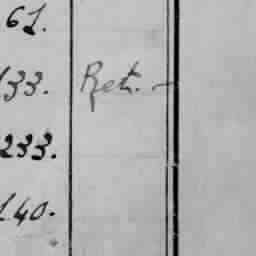 61.
133. Ret. -
233.
140.